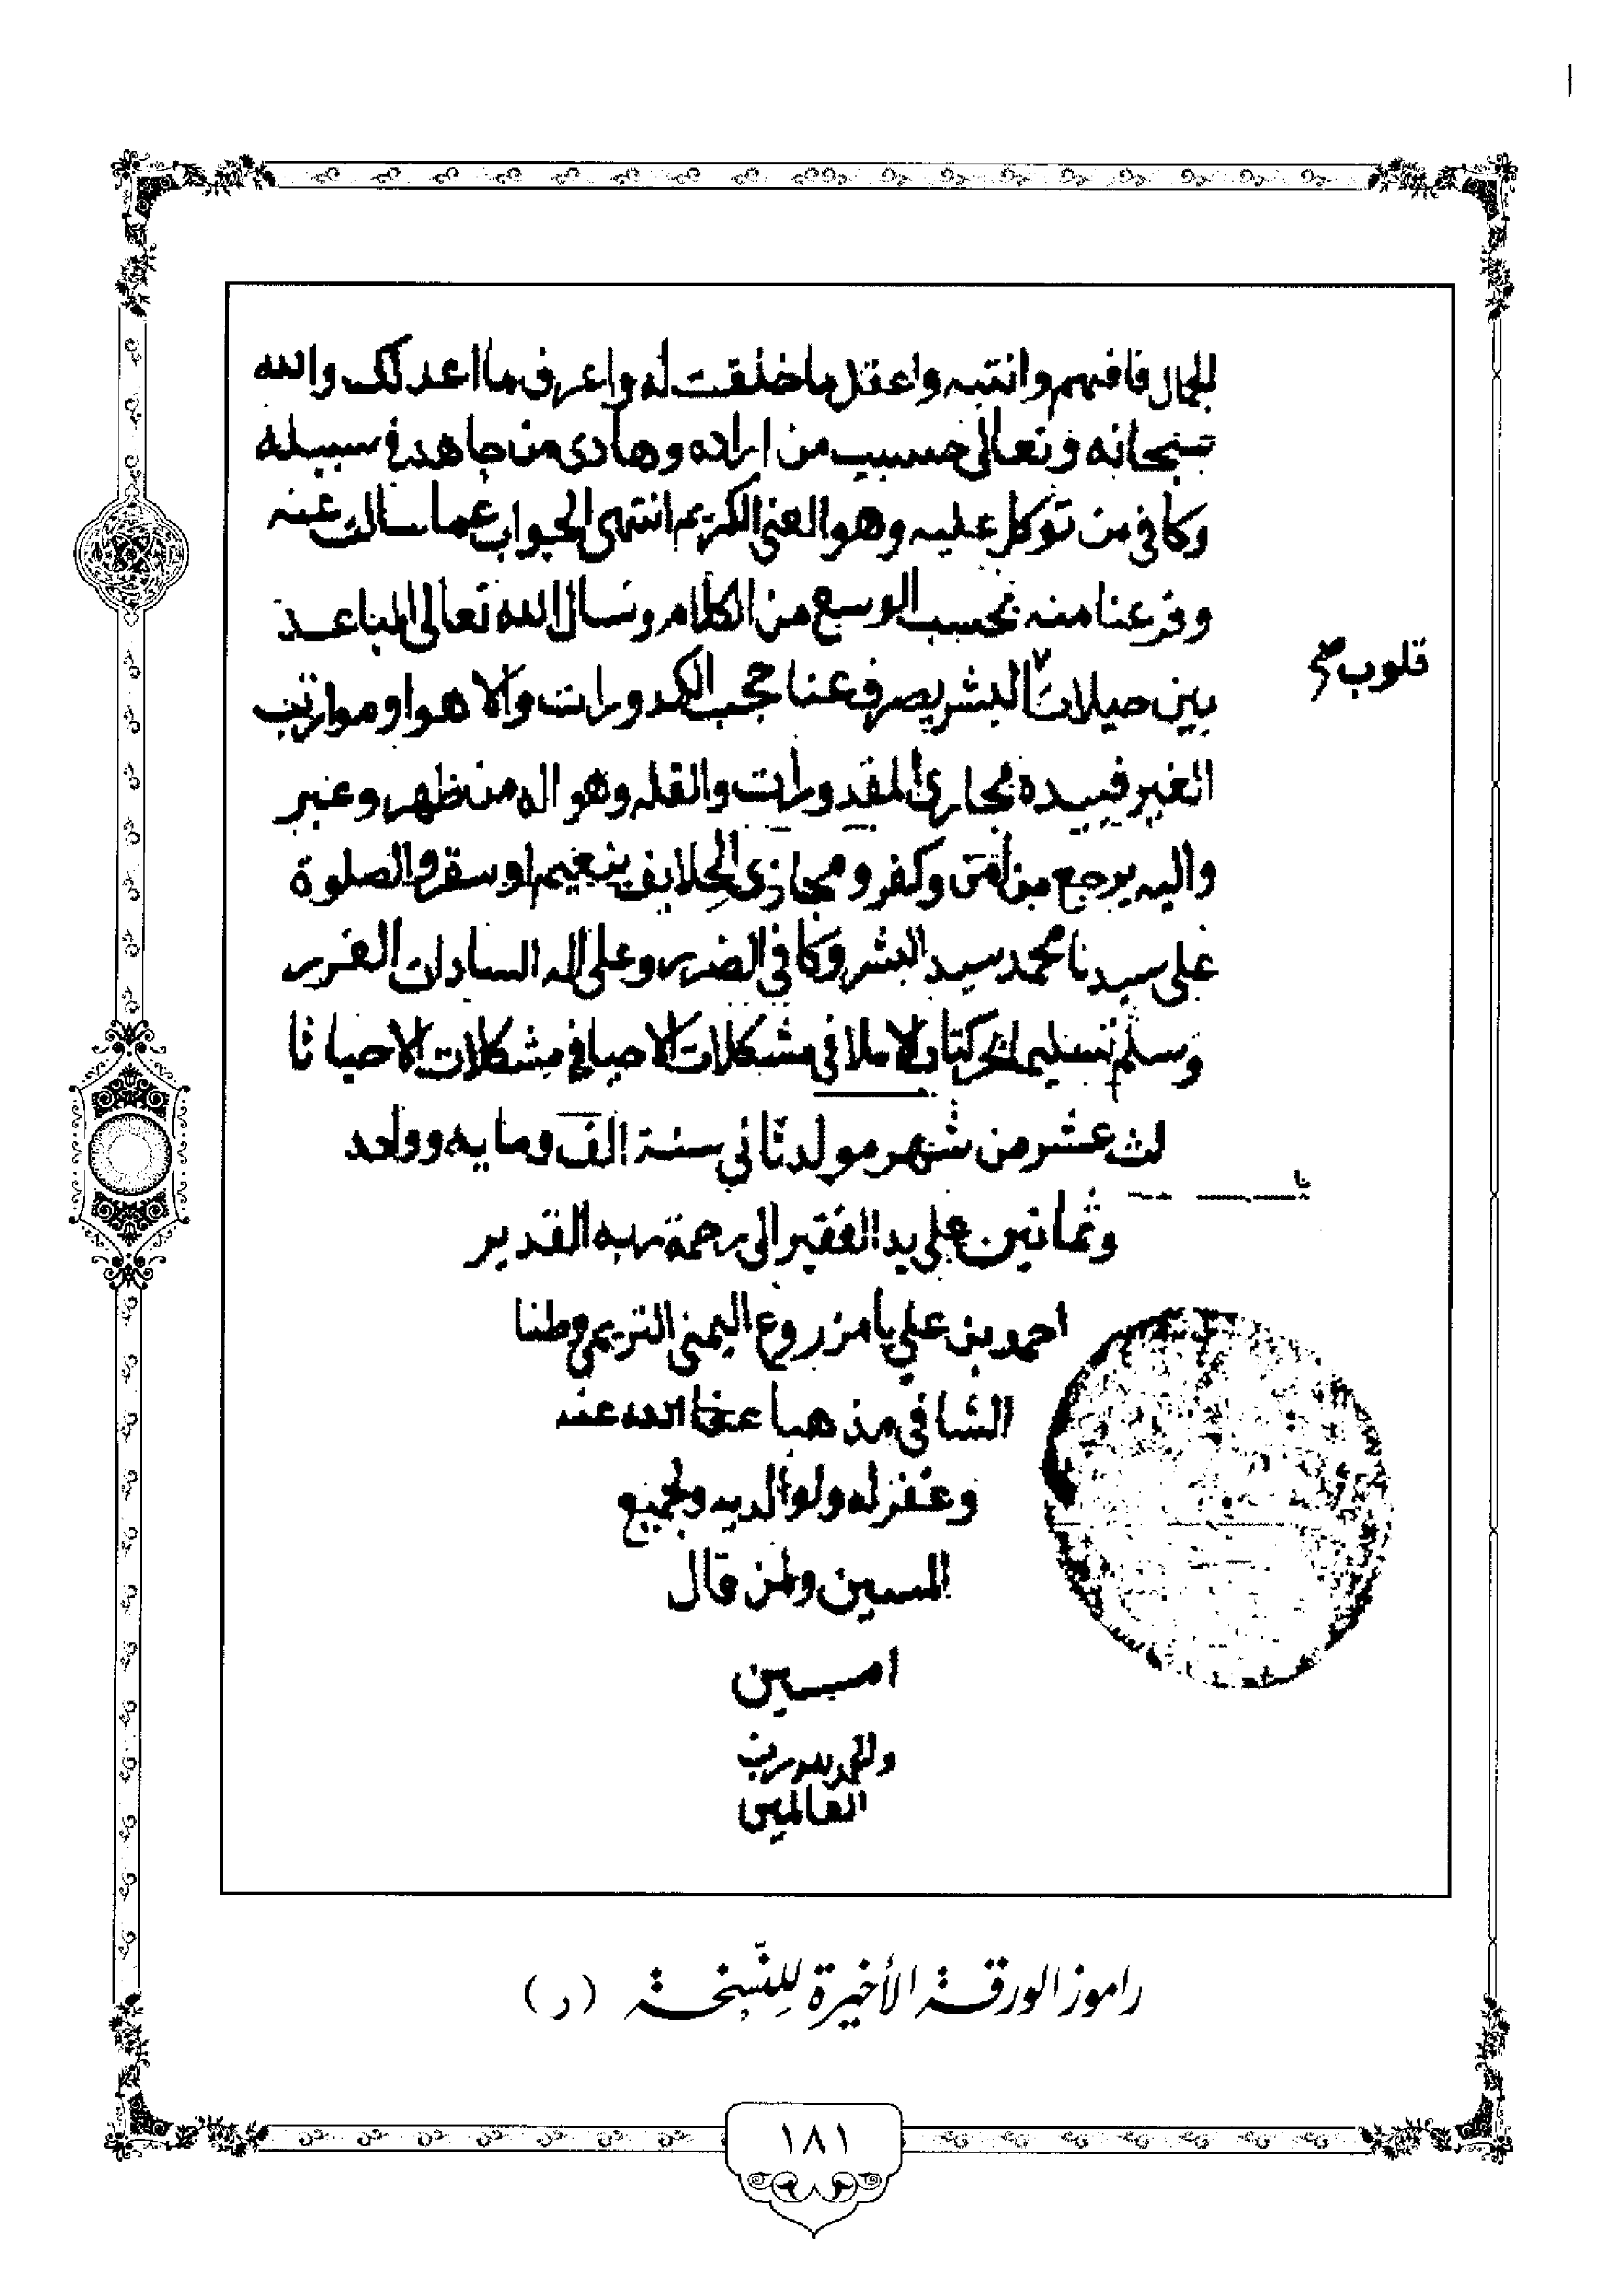 المجال فافهم وانتبه واعتدل ما خلقت له واعرف ما اعد لك والله
سبحانه وتعالى حسيب من اراده وهادى من جاهد في سبيله
وكافي من توكل عليه وهو الغني الكريم انتهى الجواب عما سالت عنه
وفرغنا منه بحسب الوسع من الكلام ونسال الله تعالى المباعد
بين حيلات البشر يصرف عنا حجب الكدورات والاهوا ومو
قلوب صح
الغير فبيده مجارى المقدورات وهو اله من ظهر وغبر
واليه يرجع من امن وكفر ومجازى الخلايف بنعيم او سقر والصلوة
على سيدنا محمد سيد البشر وكافي الضرر وعلى اله السادات الغرر
وسلم تسليم كتاب الاملا في مشكلات الاحيا في مشكلات الاحيا ثا
لث عشر من شهر مولد ثاني سنة الف ومايه وواحد
وثمانين على يد الفقير الى رحمة ربه القدير
احمد بن علي بامزروع اليمني التريمي وطنا
الشافي مذهبا عفا الله عنه
وغفر له ولوالديه ولجميع
المسين ولمن قال
امين
والحمد لله رب
العالمين
راموز الورقة الأخيرة للنسخة (د)
١٨١